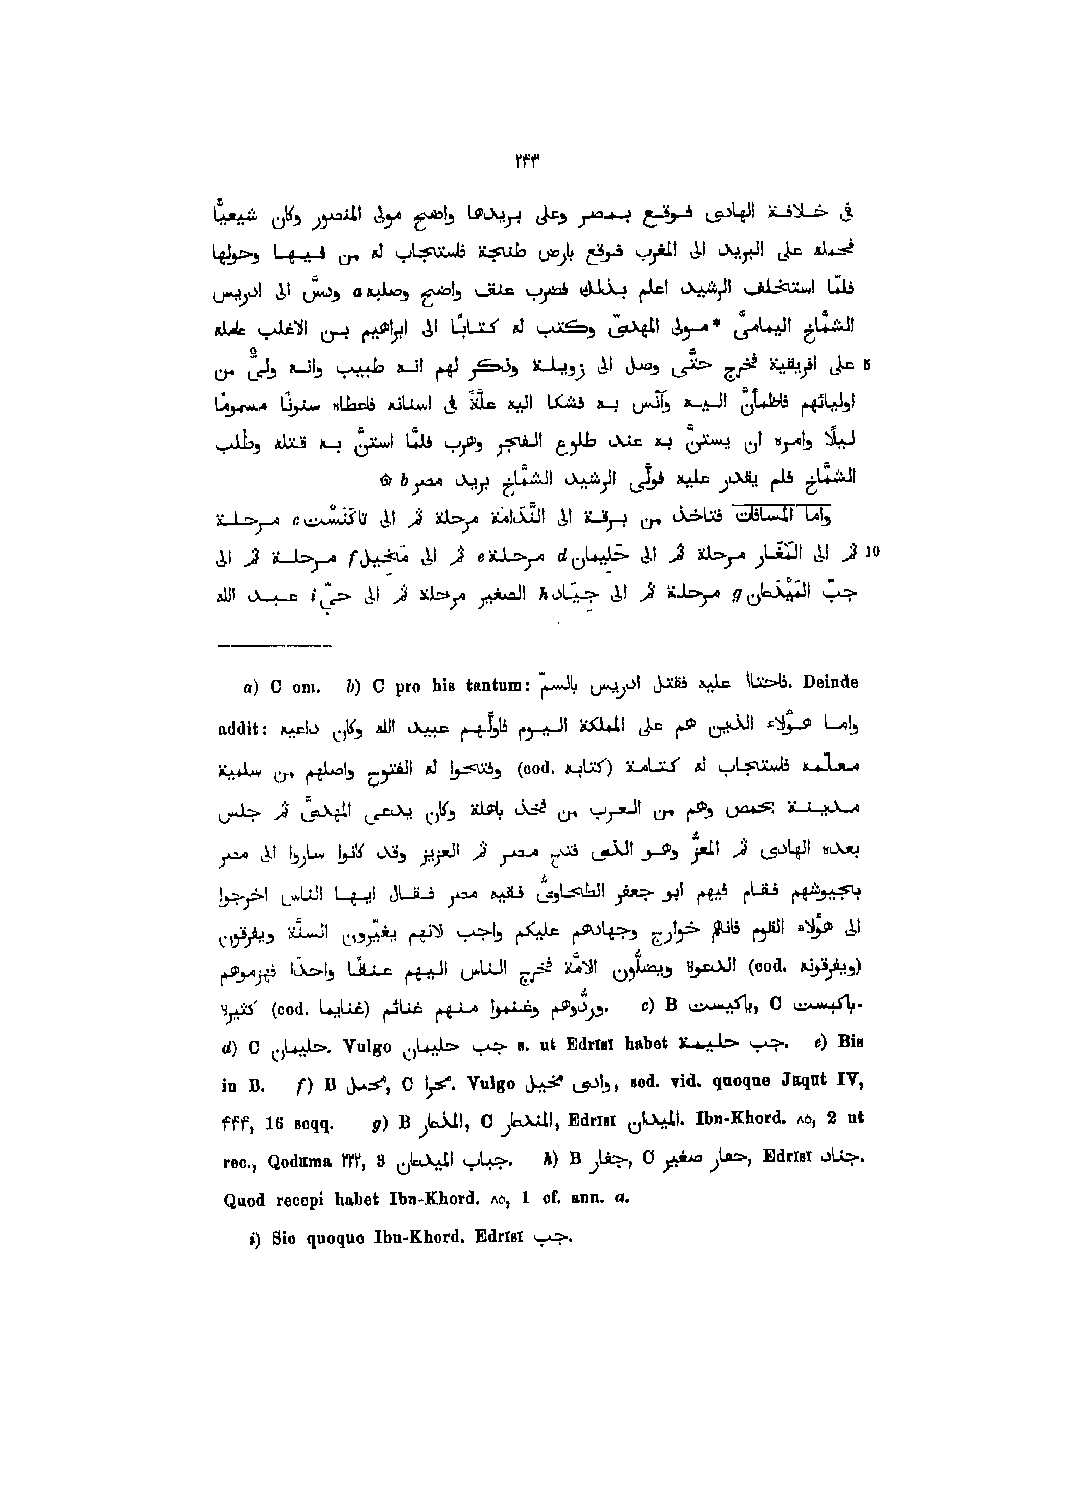 ٢٤٣
فى خلافة الهادى فوقع بمصر وعلى بريدها واضح مولى المنصور وكان شيعيًّا
فحمله على البريد الى المغرب فوقع بارض طنجة فاستجاب له من فيها وحولها
فلمّا استخلف الرشيد اعلم بذلك فضرب عنق واضح وصلبه a ودسَّ الى ادريس
الشمَّاخ اليمامىَّ *مولى المهدىّ وكتب له كتابًا الى ابراهيم بن الاغلب عامله
5 على افريقية فخرج حتَّى وصل الى زويلة وذكر لهم انه طبيب وانه ولىٌّ من
اوليائهم فاطمأنَّ اليه وآنس به فشكا اليه علّةً فى اسنانه فاعطاه سنونًا مسمومًا
ليلًا وامره ان يستنَّ به عند طلوع الفجر وهرب فلمَّا استنَّ به قتله وطلب
الشمَّاخ فلم يقدر عليه فولَّى الرشيد الشمَّاخ بريد مصر b ۞
واما المسافات فتاخذ من برقة الى النَّدامَة مرحلة ثم الى تاكَنَسْت c مرحلة
10 ثم الى المَغَار مرحلة ثم الى حَلِيمان d مرحلة e ثم الى مَخِيل f مرحلة ثم الى
جبّ المَيْدَعان g مرحلة ثم الى جِيَاد h الصغير مرحلة ثم الى حىّ i عبد الله
a) C om. b) C pro his tantum: فاحتال عليه فقتل ادريس بالسمّ. Deinde
addit: واما هؤلاء الذين هم على المملكة اليوم فاوّلهم عبيد الله وكان داعيه
معلمه فاستجاب له كتامة (cod. كتابه) وفتحوا له الفتوح واصلهم من سلمية
مدينة بحمص وهم من العرب من فخذ باهلة وكان يدعى المهدىَّ ثم جلس
بعده الهادى ثم المعزُّ وهو الذى فتح مصر ثم العزيز وقد كانوا ساروا الى مصر
بجيوشهم فقام فيهم ابو جعفر الطحاوىُّ فقيه مصر فقال ايها الناس اخرجوا
الى هؤلاء القوم فانهم خوارج وجهادهم عليكم واجب لانهم يغيّرون السنَّة ويفرقون
(cod. ويفرقونه) الدعوة ويضلُّون الامّة فخرج الناس اليهم عنقًا واحدًا فهزموهم
وردُّوهم وغنموا منهم غنائم (cod. غنايما) كثيرة. c) B باكيست, C باكيست.
d) C حليمان. Vulgo جب حليمان s. ut Edrīsī habet جب حليمة. e) Bis
in B. f) B محمل, C محرا. Vulgo وادى مخيل, sed. vid. quoque Jāqūt IV,
۴۴۴, 16 seqq. g) B المدعار, C المندعار, Edrīsī الميدان. Ibn-Khord. ٨٥, 2 ut
rec., Qodāma ٢٢٢, 3 جباب الميدعان. h) B جفار, C حفار صغير, Edrīsī جناد.
Quod recepi habet Ibn-Khord. ٨٥, 1 cf. ann. a.
i) Sic quoque Ibn-Khord. Edrīsī جب.